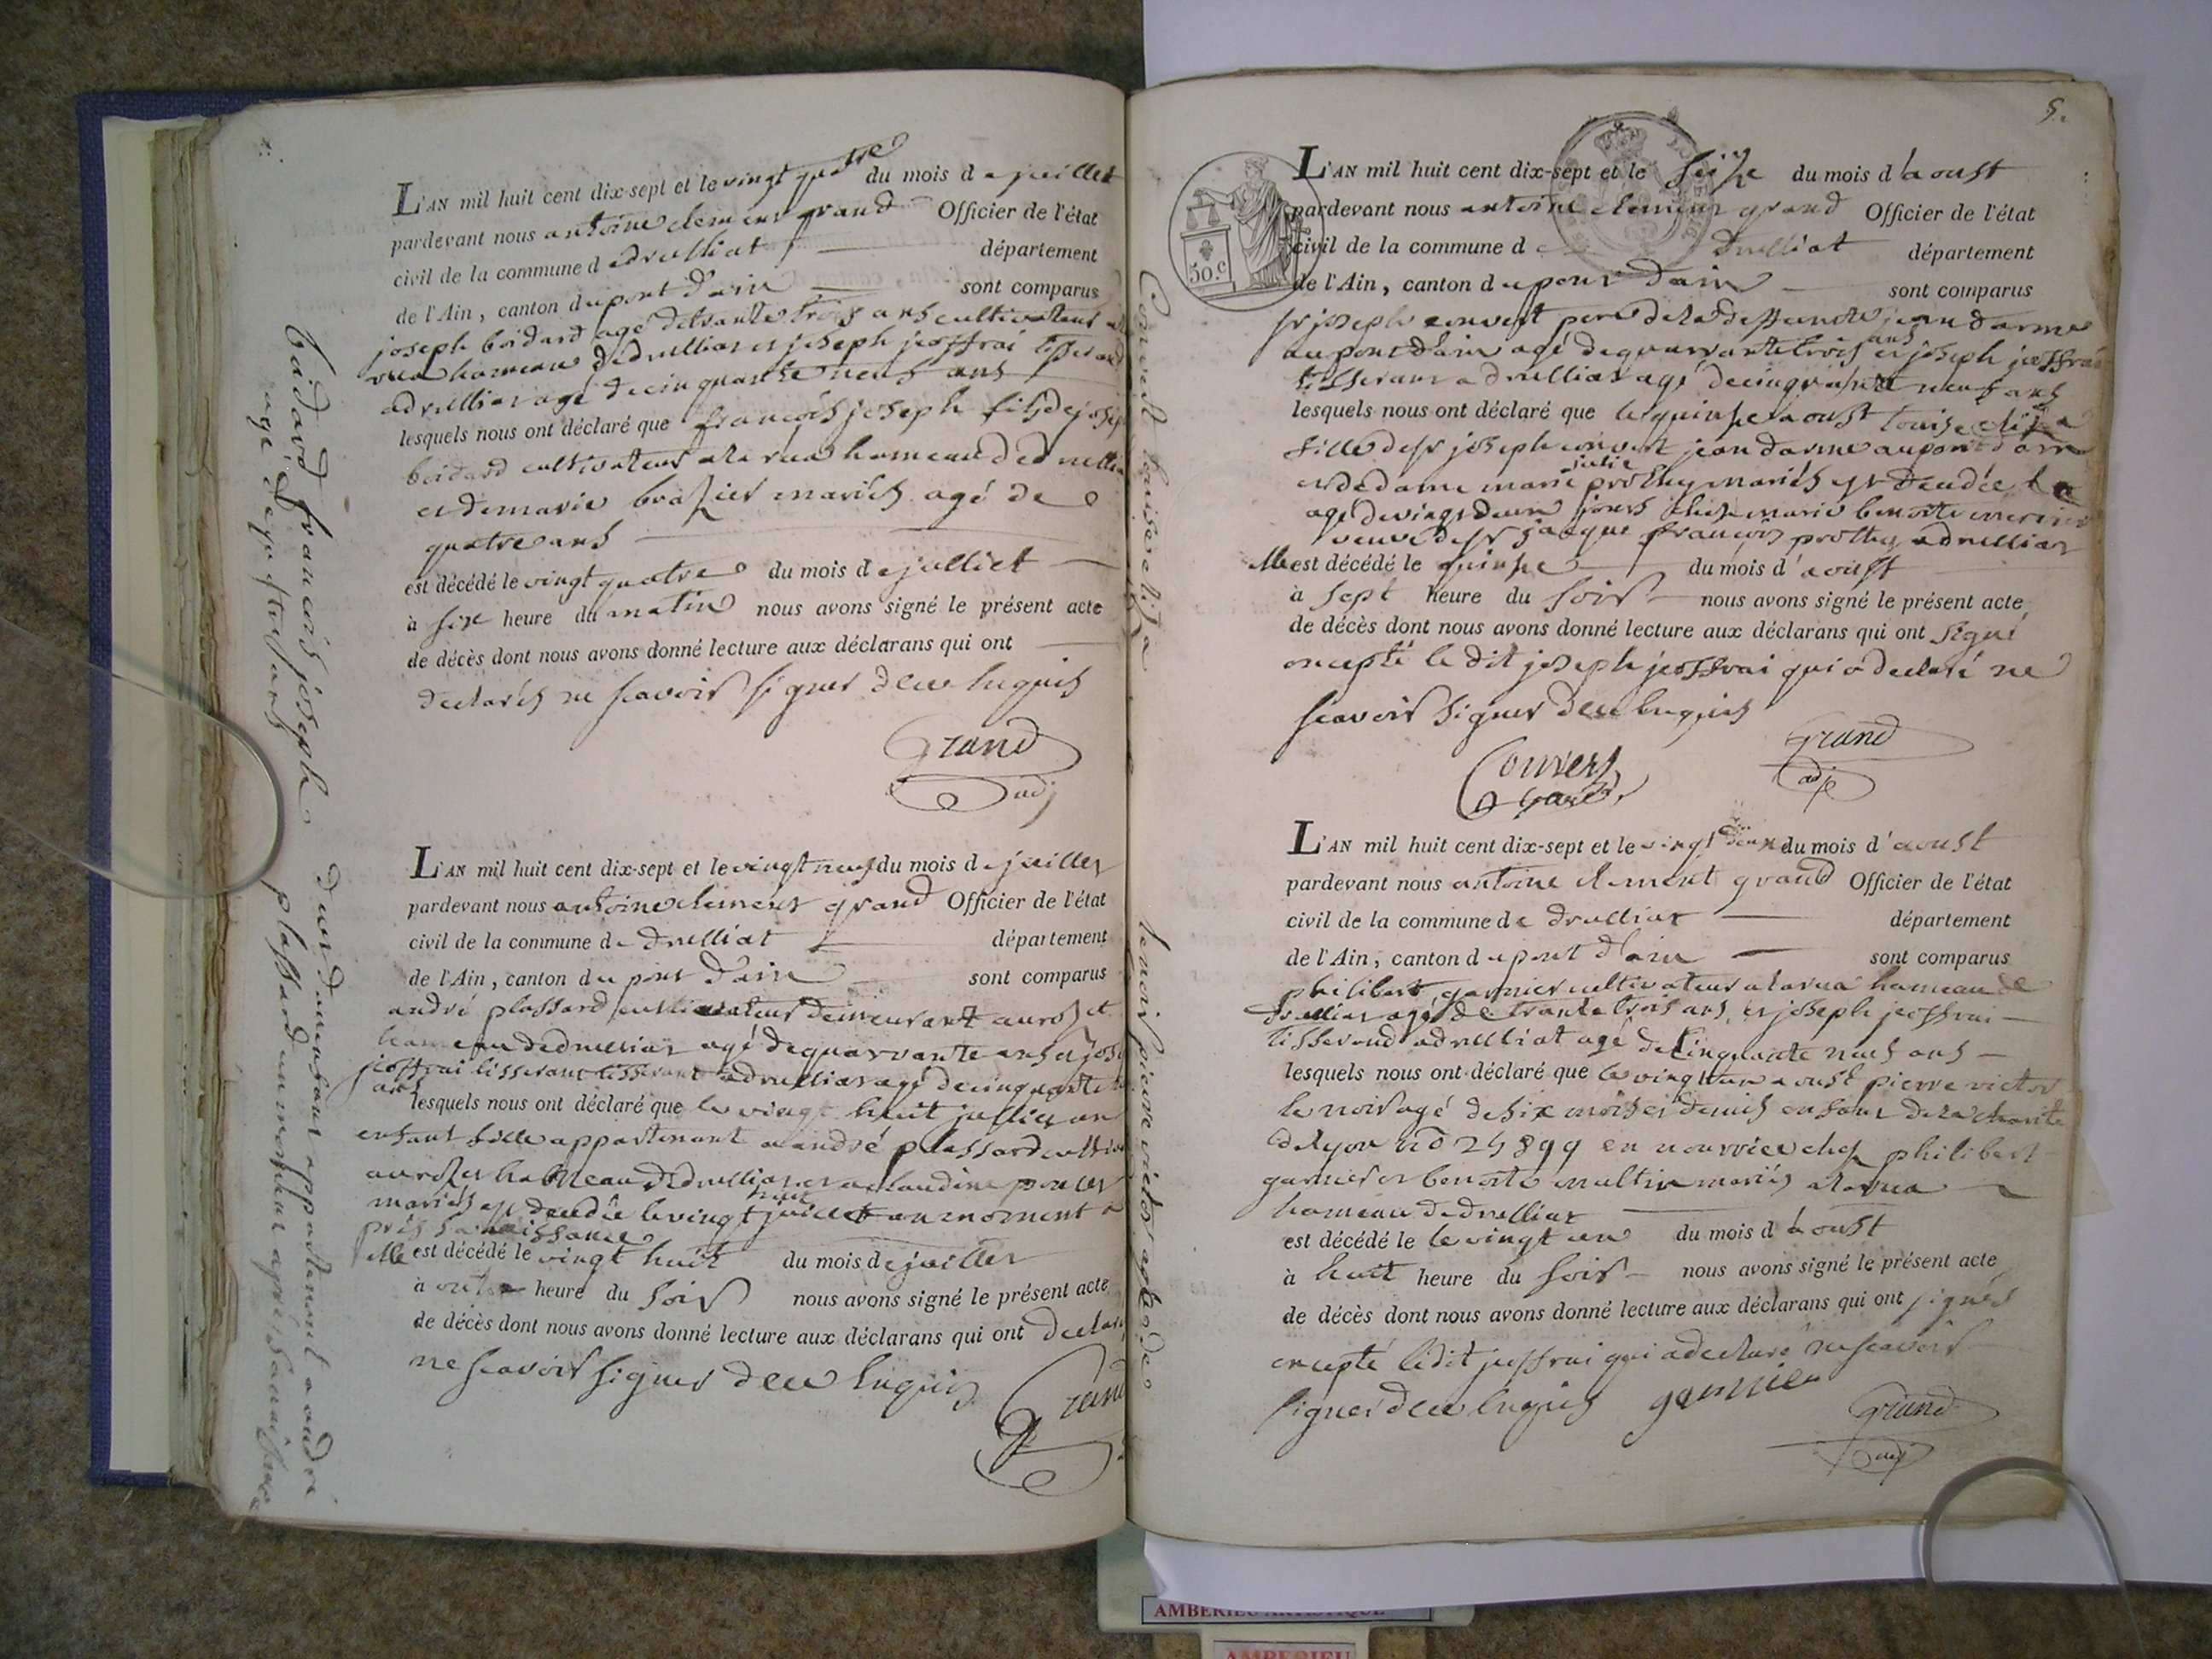 baidard francois joseph
agé de quatre ans
L'AN mil huit cent dix-sept et le vingt quatre du mois de juillet
pardevant nous antoine clement grand Officier de l'état
civil de la commune de druilliat département
de l'Ain, canton du pont d'ain sont comparus
joseph boidard agé de trante trois ans cultivateur
hameau de druilliat et joseph jeoffrai tisserand
a druilliat agé de cinquante neuf ans
lesquels nous ont déclaré que françois joseph fils de joseph
boidard cultivateur a la rua hameau de druilliat
et de marie brazier mariés agé de
quatre ans
est décédé le vingt quatre du mois de julliet
à six heure du matin nous avons signé le présent acte
de décès dont nous avons donné lecture aux déclarans qui ont
declarés ne scavoir signer de ce enquis
Grand
adj
plassard un moment apres sa naissance
L'AN mil huit cent dix-sept et le vingt neuf du mois de juillet
pardevant nous antoine clement grand Officier de l'état
civil de la commune de druilliat département
de l'Ain, canton du pont d'ain sont comparus
andré plassard cultivateur demeurant au
hameau de druilliat agé de quarrante ans et joseph
jeoffrai tisserant tisserant a druilliat agé de cinquante
ans
lesquels nous ont déclaré que le vingt huit julliet un
enfant fille appartenant a andré plassard
hameau de druilliat et a claudine
mariés est decedée le vingt huit juillet un moment a
près sa naissance
elle est décédé le vingt huit du mois de juillet
à heure du soir nous avons signé le présent acte
de décès dont nous avons donné lecture aux déclarans qui ont declaré
ne scavoir signer de ce enquis
Grand
5.
Convert louise eliza
50.c
L'AN mil huit cent dix-sept et le seize du mois d'aoust
pardevant nous antoine clement grand Officier de l'état
civil de la commune de druilliat département
de l'Ain, canton du pont d'ain sont comparus
sr joseph convert pere de la deffuncte jeandarme
au pont d'ain agé de quarrante trois ans et joseph jeoffrai
tisserant a druilliat agé de cinquante neuf ans
lesquels nous ont déclaré que le quinze aoust louise eliza
fille de sr joseph convert jeandarme au pont d'ain
et de dame marie julie prothy mariés est decedée
agé de vingt deux jours chez marie benoite
veuve de sr jacque françois prothy a druilliat
elle est décédé le quinze du mois d'aoust
à sept heure du soir nous avons signé le présent acte
de décès dont nous avons donné lecture aux déclarans qui ont signé
excepté le dit joseph jeoffrai qui a declaré ne
scavoir signer de ce enquis
Convert
Grand
adj
lenoir pierre victor agé de
L'AN mil huit cent dix-sept et le vingt deux du mois d'aoust
pardevant nous antoine clement grand Officier de l'état
civil de la commune de druilliat département
de l'Ain, canton du pont d'ain sont comparus
philibert garnier cultivateur a la rua hameau de
druilliat agé de trante trois ans et joseph jeoffrai
tisserand a druilliat agé de cinquante neuf ans
lesquels nous ont déclaré que le vingt un aoust pierre victor
le noir agé de six mois et demis enfant de la charité
de lyon no 25899 en nourrice chez philibert
garnier et benoite mariés a la rua
hameau de druilliat
est décédé le le vingt un du mois d'aoust
à huit heure du soir nous avons signé le présent acte
de décès dont nous avons donné lecture aux déclarans qui ont signés
excepté ledit jeoffrai qui a declaré ne scavoir
signer de ce enquis garnier
Grand
adj
AMBERIEU ARTISTIQUE
AMBERIEU